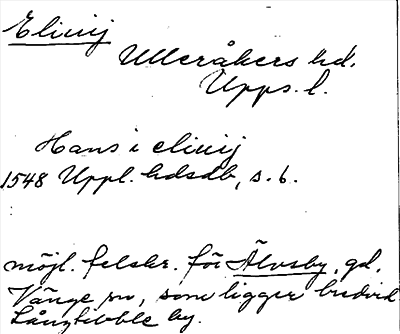 Eliuij
Ulleråkers hd.
Upps. l.
Hans i eliuij
1548 Uppl. hdsdb, s. 6.
möjl. felskr. för Älvsby, gd.
Vänge sn, som ligger bredvid
Långtibble by.